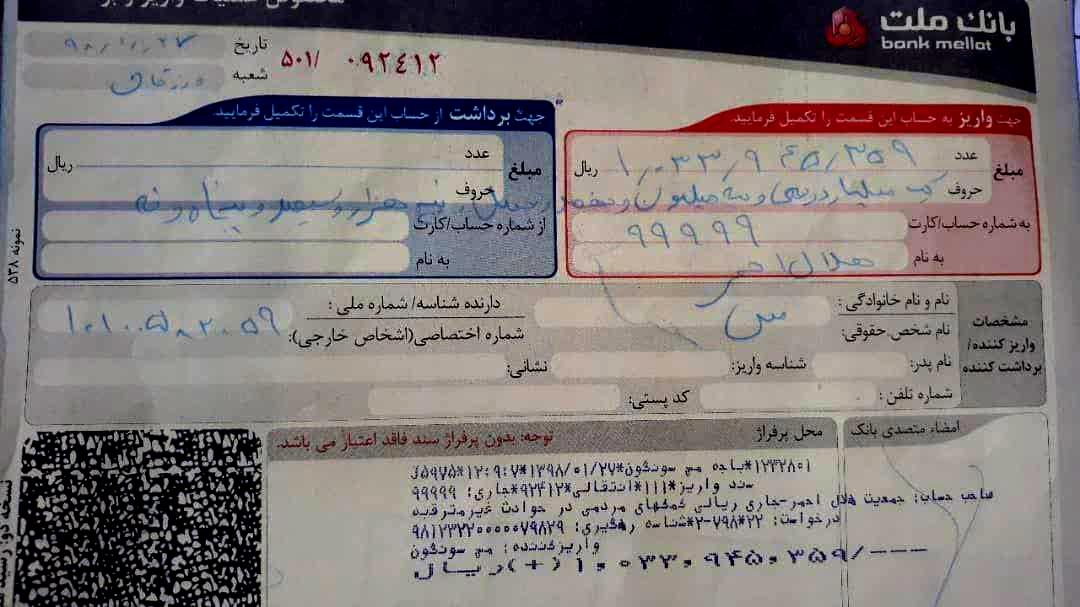 مخصوص عملیات واریز و بر
بانک ملت
bank mellat
تاریخ ۹۸/۱/۲۷
شعبه
۵۰۱/ ۰۹۲۴۱۲
جهت واریز به حساب این قسمت را تکمیل فرمایید.
مبلغ
عدد ۱,۰۳۳,۹۴۵,۳۵۹ ریال
حروف یک میلیارد و سی و سه میلیون و نهصد هزار و سیصد و پنجاه و نه
به شماره حساب/کارت ۹۹۹۹۹
به نام هلال احمر
جهت برداشت از حساب این قسمت را تکمیل فرمایید.
مبلغ
عدد ریال
حروف
از شماره حساب/کارت
به نام
نمونه ۵۳۸
مشخصات واریز کننده/ برداشت کننده
نام و نام خانوادگی:
نام شخص حقوقی: مس
دارنده شناسه/ شماره ملی:
شماره اختصاصی(اشخاص خارجی): ۱۰۱۰۰۵۸۲۰۵۹
نام پدر: شناسه واریز: نشانی:
شماره تلفن: کد پستی:
امضاء متصدی بانک
محل پرفراژ
توجه: بدون پرفراژ سند فاقد اعتبار می باشد.
۱۲۳۲۸۰۱*باجه مس سونگون*۱۳۹۸/۰۱/۲۷*۱۲:۹:۷*۵۹۷۵
سند واریز*۱۱۱*انتقالی*۹۲۴۱۲*جاری: ۹۹۹۹۹
صاحب حساب: جمعیت هلال احمر-جاری ریالی کمکهای مردمی در حوادث غیرمترقبه
درخواست: ۲۲*۷۹۸-۲*شناسه رهگیری: ۹۸۱۲۳۲۲۰۰۰۰۰۷۹۸۲۹
واریزکننده: مس سونگون
۱,۰۳۳,۹۴۵,۳۵۹/--- (+)ریال
نسخه دو: رسید